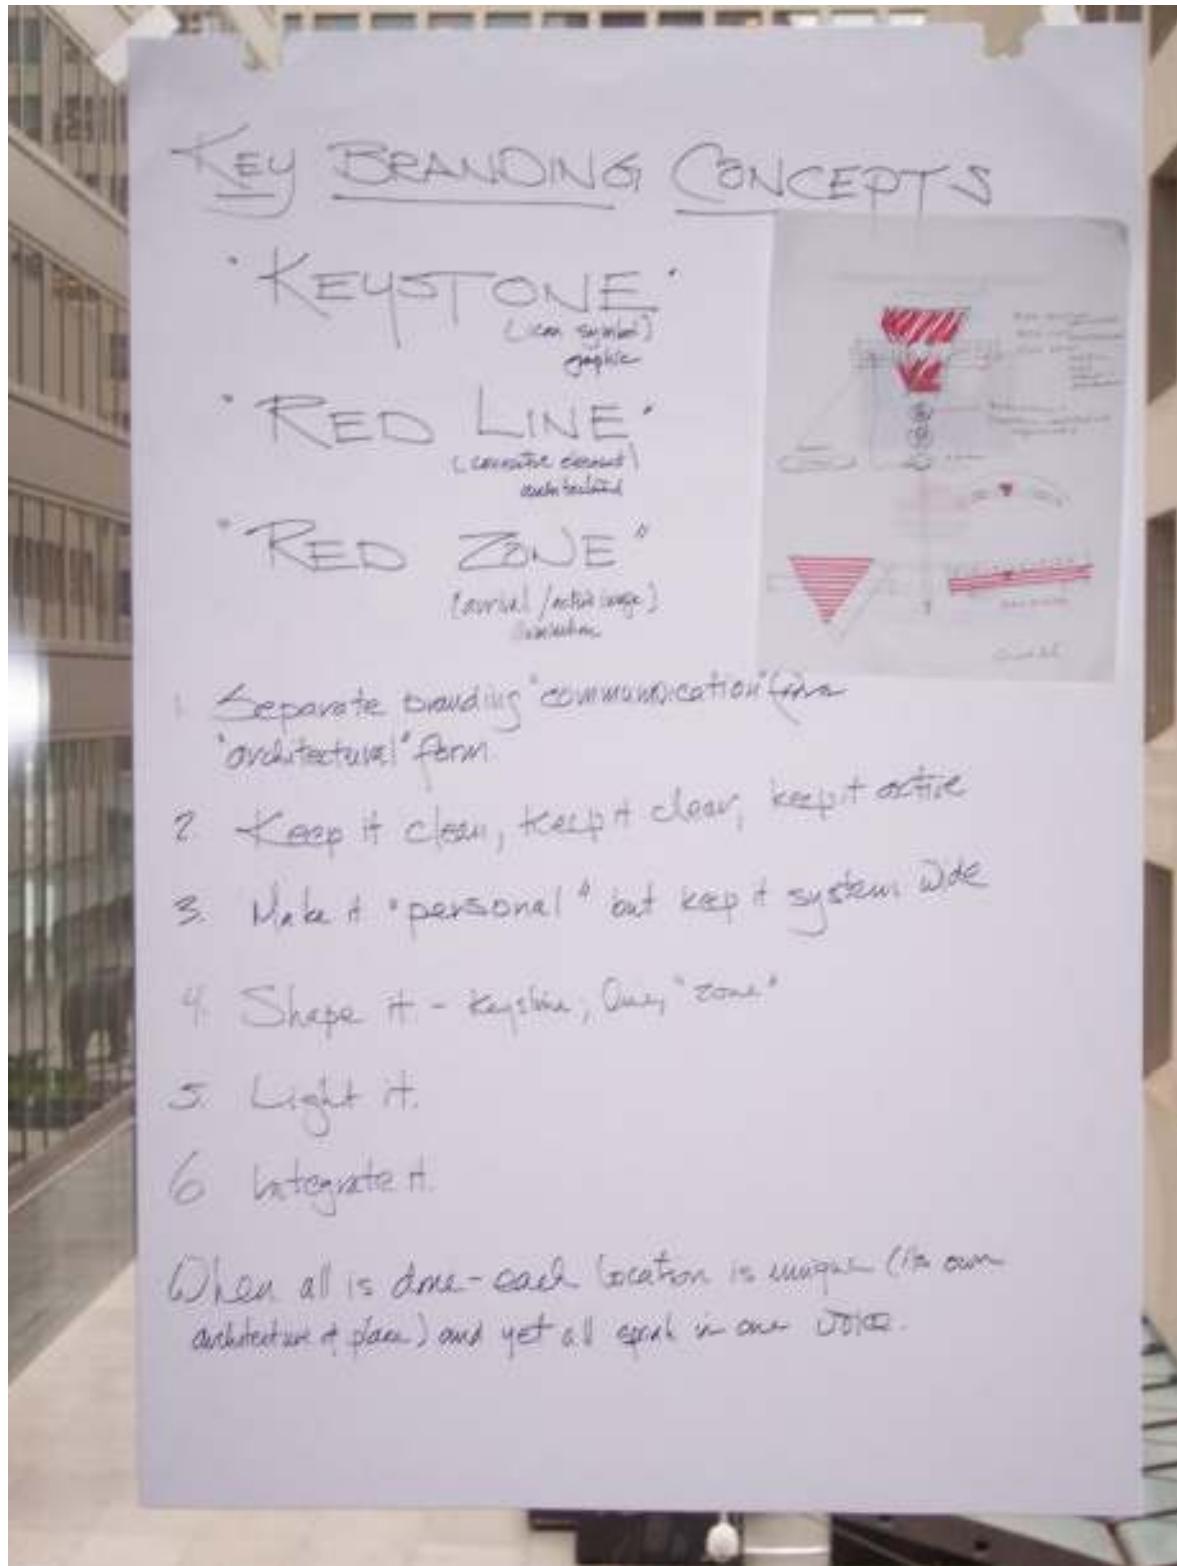 KEY BRANDING CONCEPTS
"KEYSTONE"
(icon symbol)
graphic
"RED LINE"
(connective element)
architectural
"RED ZONE"
(arrival / active image)
1. Separate branding "communication" from
"architectural" form.
2. Keep it clean, keep it clear, keep it active
3. Make it "personal" but keep it system wide
4. Shape it - keystone, line, "zone"
5. Light it.
6 Integrate it.
When all is done - each location is unique (its own
architecture of place) and yet all speak in one voice.